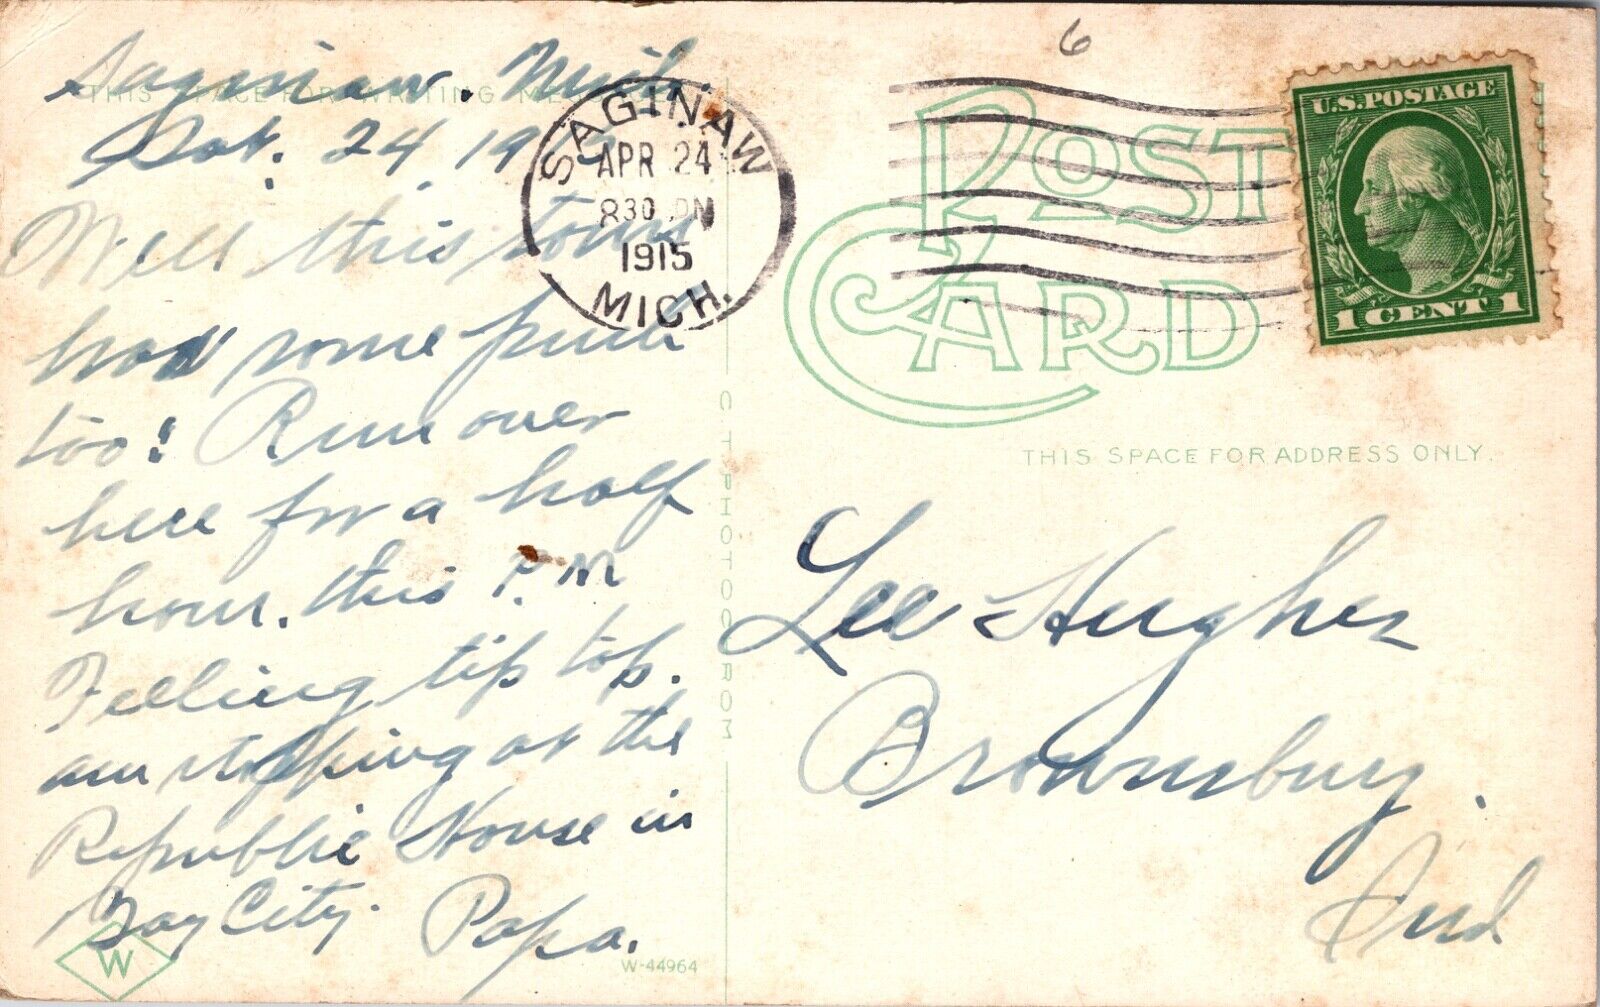 Saginaw. Mich
Sat. 24 19
Well this town
has some push
too! Run over
here for a half
hour. this P.M
Feeling tip top.
am stopping at the
Republic House in
Bay City. Papa.
THIS SPACE FOR WRITING
SAGINAW
APR 24
830 PM
1915
MICH.
6
POST CARD
U.S. POSTAGE
1 CENT 1
THIS SPACE FOR ADDRESS ONLY.
Lee Hughes
Brownsburg.
Ind.
C. T. PHOTOCHROM
W
W-44964